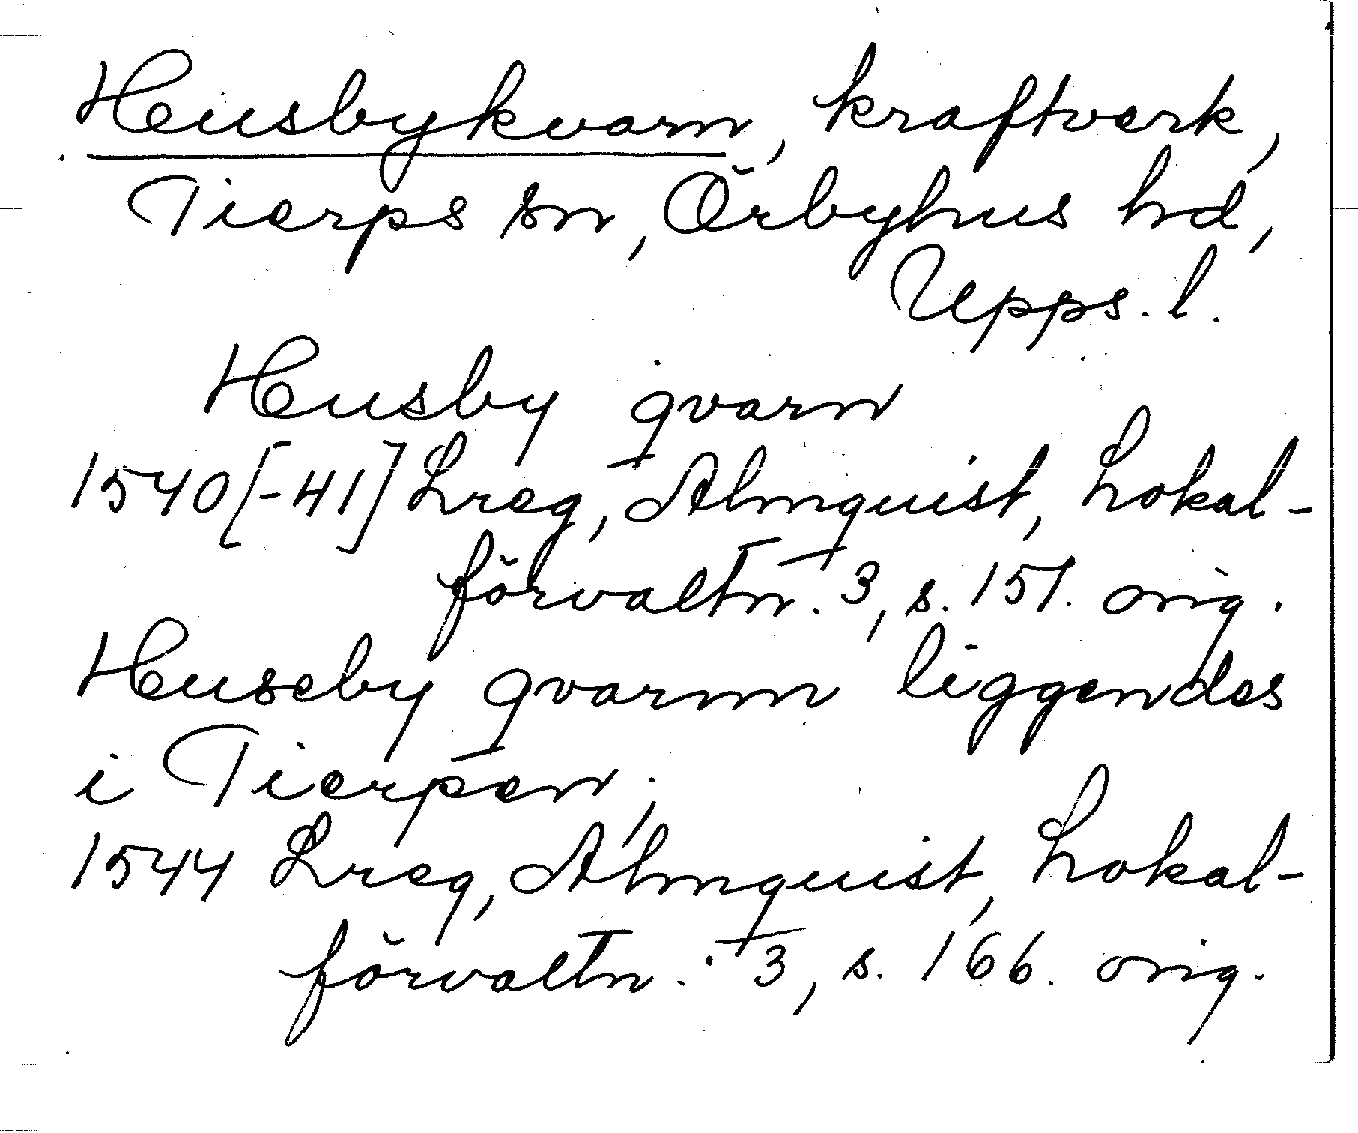 Husbykvarn, kraftverk,
Tierps sn, Örbyhus hd,
Upps. l.
Husby qvarn
1540[-41] Lreg, Almquist, Lokal-
förvaltn. 3, s. 151. orig.
Huseby qvarnn liggendes
i Tierpen,
1544 Lreg, Almquist, Lokal-
förvaltn. 3, s. 166. orig.